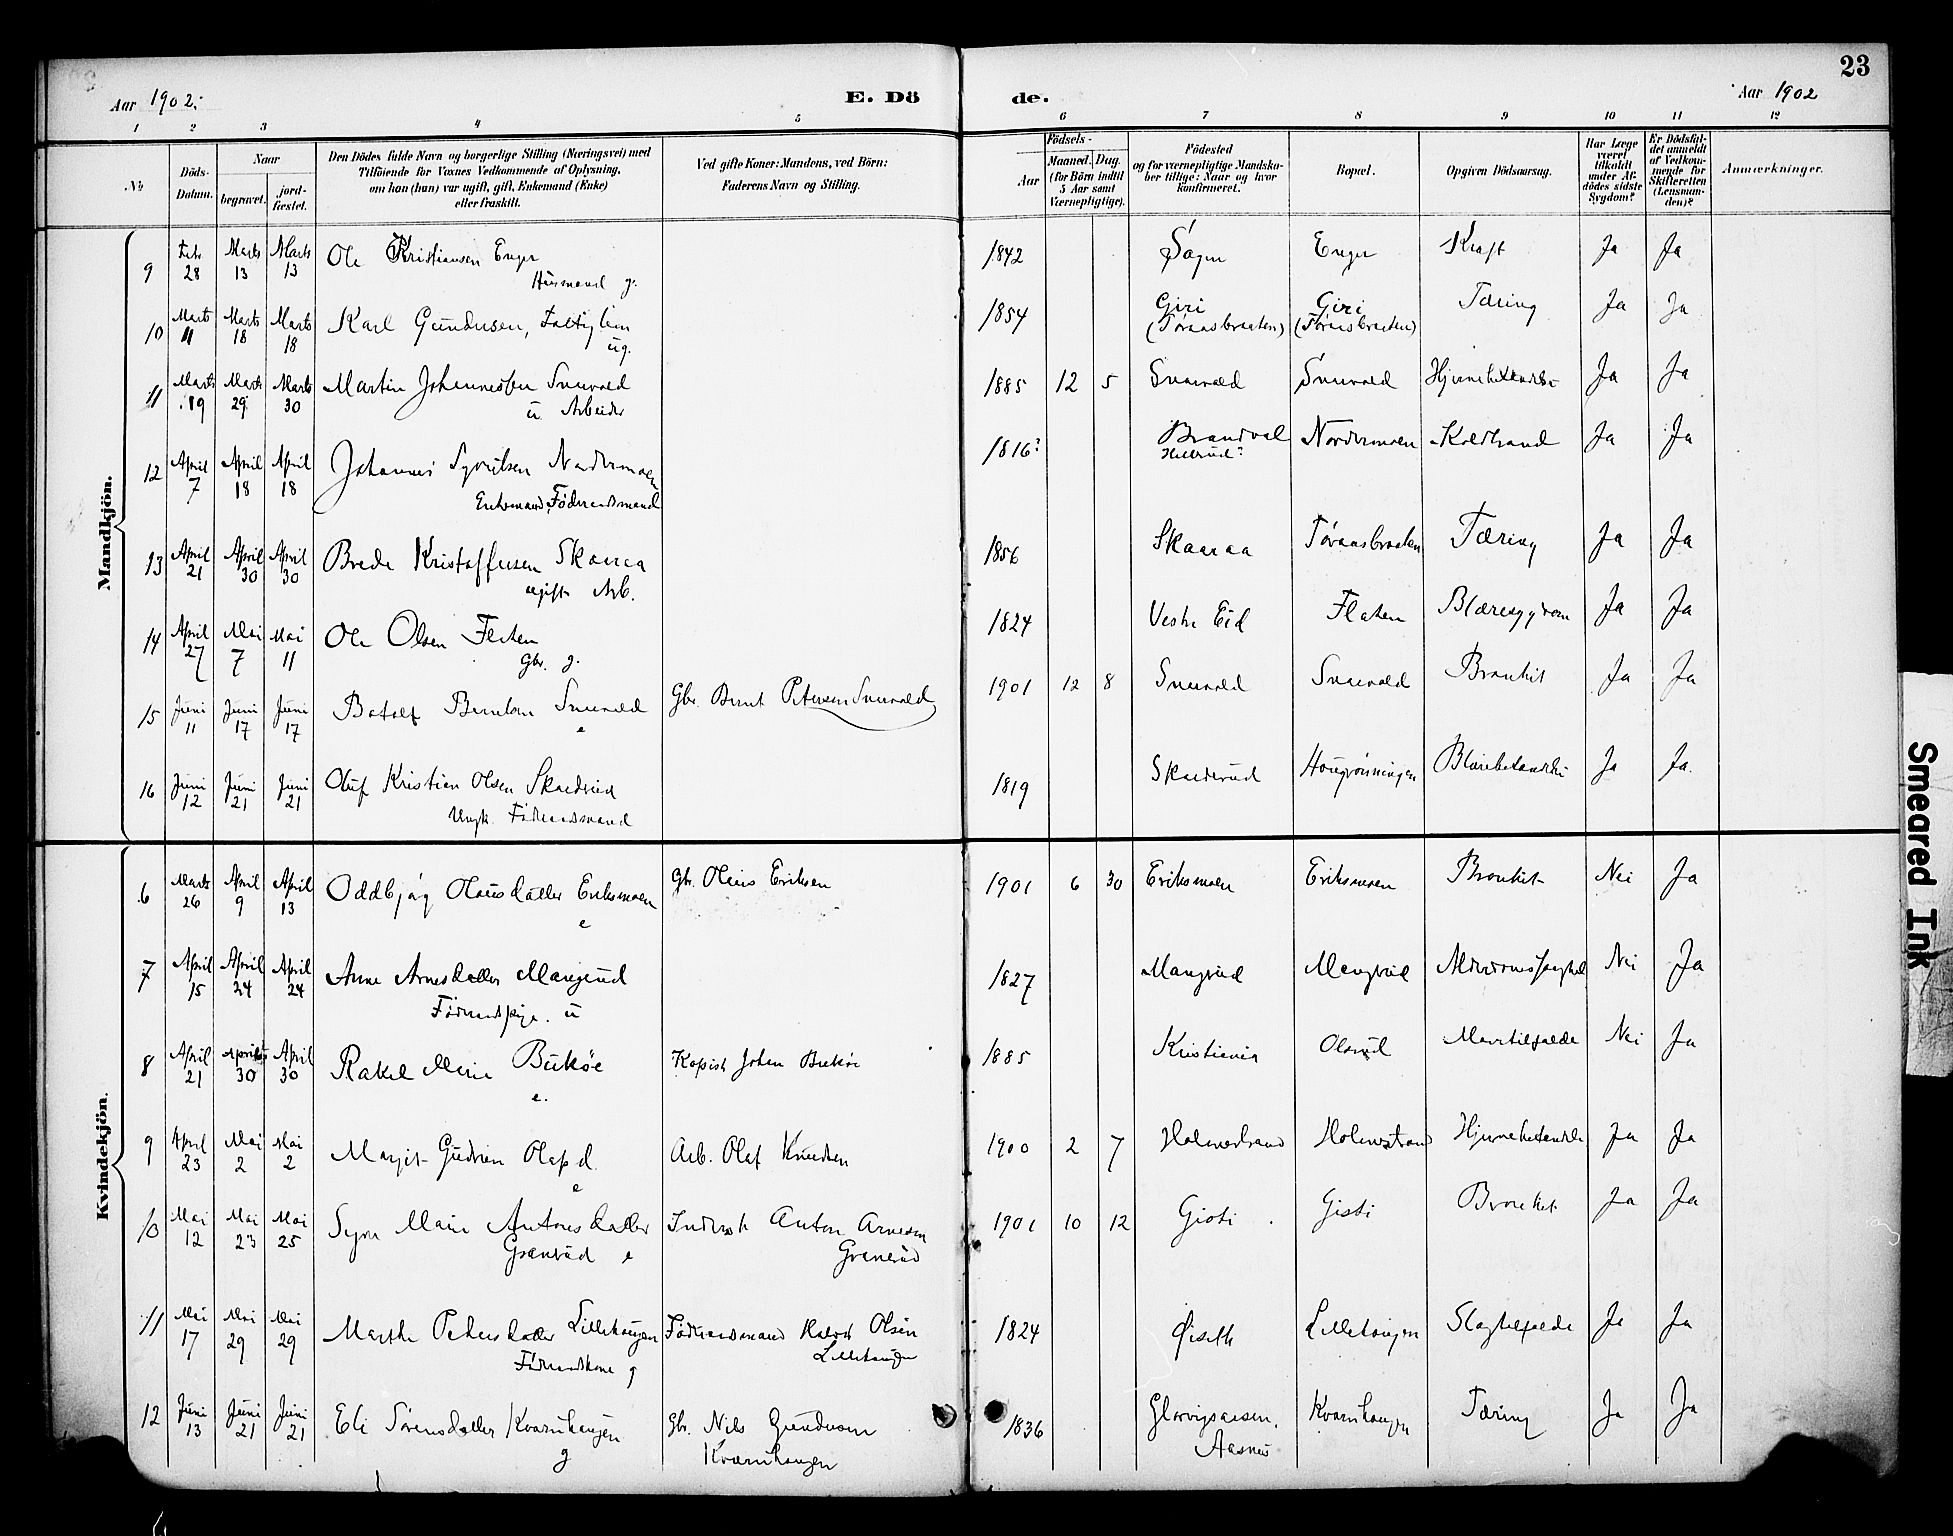 23
Aar 1902.
E. Dö
de.
Aar 1902
1 2 3 4 5 6 7 8 9 10 11 12
№
Döds-
Datum.
Naar
begravet.
jord-
fæstet.
Den Dödes fulde Navn og borgerlige Stilling (Næringsvei) med
Tilföiende for Voxnes Vedkommende af Oplysning,
om han (hun) var ugift, gift, Enkemand (Enke)
eller fraskilt.
Ved gifte Koner: Mandens, ved Börn:
Faderens Navn og Stilling.
Födsels-
Aar
Maaned. Dag.
(for Börn indtil
5 Aar samt
Værnepligtige).
Födested
og for værnepligtige Mandska-
ber tillige: Naar og hvor
konfirmeret.
Bopæl.
Opgiven Dödsaarsag.
Har Læge
været
tilkaldt
under Af-
dödes sidste
Sygdom?
Er Dödsfal-
det anmeldt
af Vedkom-
mende for
Skifteretten
(Lensman-
den)?
Anmærkninger.
Mandkjön.
9 Feb. 28 Marts 13 Marts 13 Ole Kristiansen Enger 1842 Enger Kræft Ja Ja
Husmand g.
10 Marts 11 Marts 18 Marts 18 Karl Gundersen, Fattiglem 1854 Giri Giri Tæring Ja Ja
ug. (Töraasbraaten) (Töraasbraaten)
11 Marts 19 Marts 29 Marts 30 Martin Johannessen 1885 12 5 Hjernebetændelse Ja Ja
u. Arbeider
12 April 7 April 18 April 18 Johannes Syvertsen Nordermoen 1816? Brandval Nordermoen Koldbrand Ja Ja
Enkemand, Föderaadsmand
13 April 21 April 30 April 30 Brede Kristoffersen Skaaraa 1856 Skaaraa Töraasbraaten Tæring Ja Ja
ugift Arb.
14 April 27 Mai 7 Mai 11 Ole Olsen Flaten 1824 Vestre Eid Flaten Blæresygdom Ja Ja
Gbr. g.
15 Juni 11 Juni 17 Juni 17 Gbr. Bernt Petersen 1901 12 8 Bronkit Ja Ja
e
16 Juni 12 Juni 21 Juni 21 Oluf Kristian Olsen Skaderud 1819 Skaderud Blærebetændelse Ja Ja.
Föderaadsmand
Kvindekjön.
6 Marts 26 April 9 April 13 Oddbjørg Olausdatter Eriksmoen Gbr. Olaus Eriksen 1901 6 30 Eriksmoen Eriksmoen Bronkit Nei Ja
e
7 April 15 April 24 April 24 Anne Arnesdatter Mangrud 1827 Mangrud Mangrud Nei Ja
Föderaadspige. u
8 April 21 April 30 April 30 Rakel Marie Buköe Kopist Johan Buköe 1885 Kristiania Olsrud Nei Ja
e.
9 April 23 Mai 2 Mai 2 Margit Gudrun Olafsd. Arb. Olaf Knudsen 1900 2 7 Holmestrand Holmestrand Hjernebetændelse Ja Ja
e
10 Mai 12 Mai 23 Mai 25 Marie Antonsdatter Inderst Anton Arnesen 1901 10 12 Gisti Gisti Bronkit Ja Ja
Granerud e Granerud
11 Mai 17 Mai 29 Mai 29 Marthe Pedersdatter Lillehaugen Föderaadsmand Halvor Olsen 1824 Öiseth Lillehaugen Slagtilfælde Ja Ja
Föderaadskone g Lillehaugen
12 Juni 13 Juni 21 Juni 21 Eli Sörensdatter Kvarnhaugen Gbr. Nils Gundersen 1836 Kvarnhaugen Tæring Ja Ja
g Kvarnhaugen Aasnes
Smeared Ink